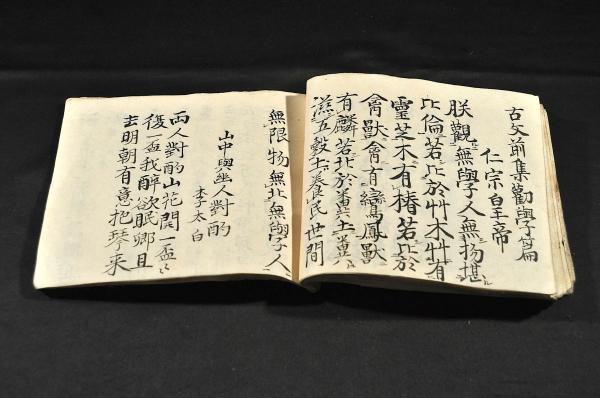 古文前集勸學篇
仁宗皇帝
朕觀無學人無物堪
比倫若比於艸木艸有
靈芝木有椿若比於
禽獸禽有鸞鳳獸
有麟若比於糞土糞
滋五穀土養民世間
無限物無比無學人
山中與坐人對酌
李太白
両人對酌山花開一盃
復一盃我醉欲眠卿且
去明朝有意把琴来